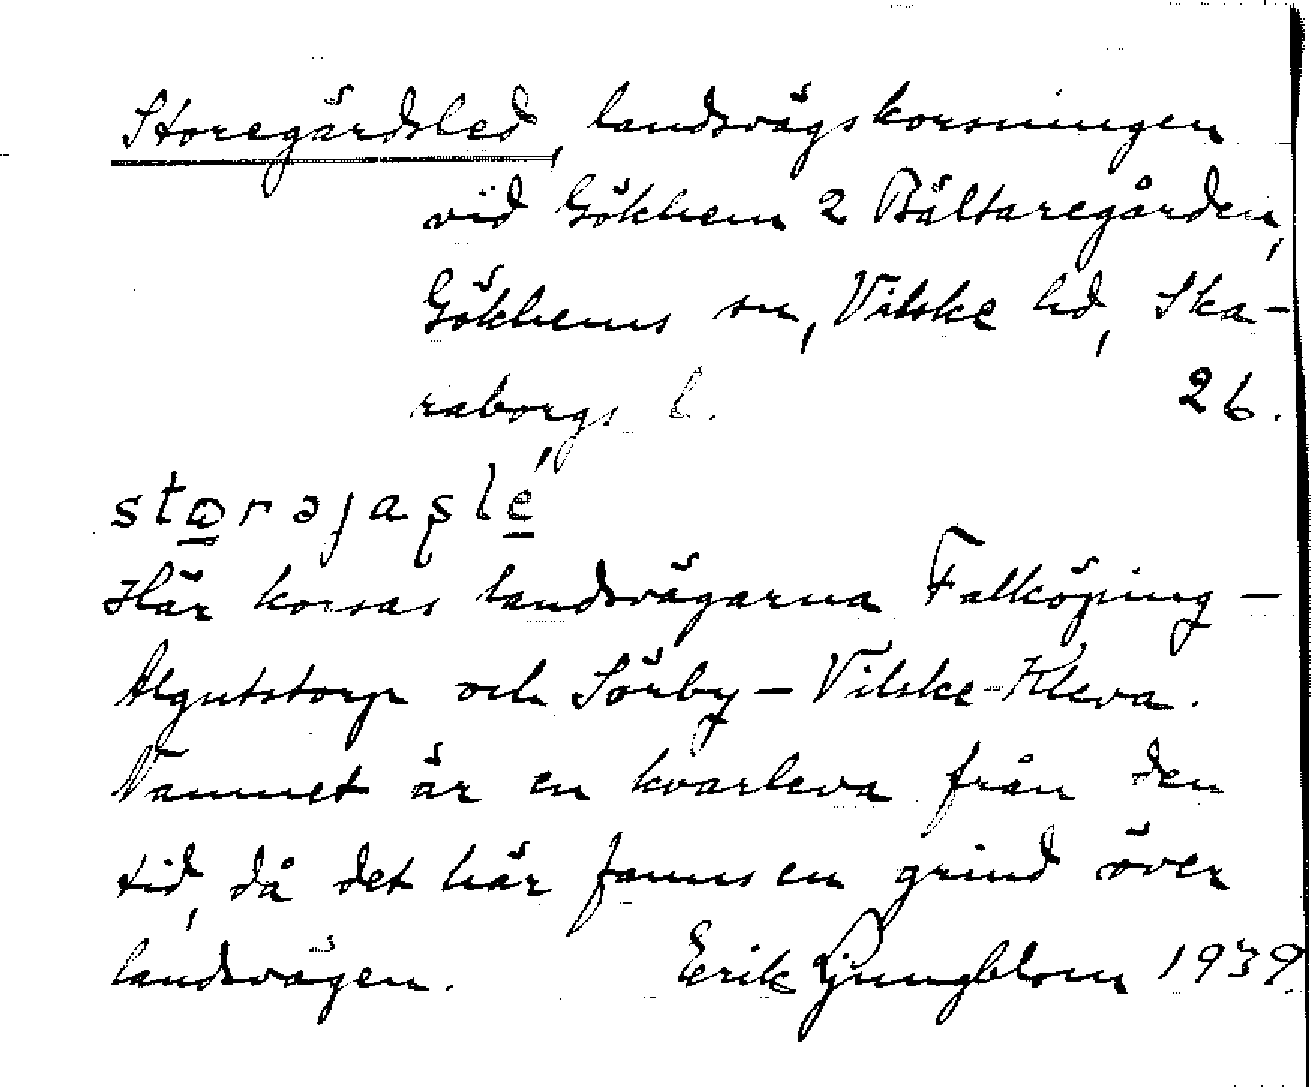 Storegärdsled, landsvägskorsningen
vid Gökhem 2 Bältaregården,
Gökhems sn, Vilske hd, Ska-
raborgs l. 26.
storəjaʂlé
Här korsas landsvägarna Falköping –
Algutstorp och Sörby – Vilske-Kleva.
Namnet är en kvarleva från den
tid, då det här fanns en grind över
landsvägen. Erik Ljungblom 1939.